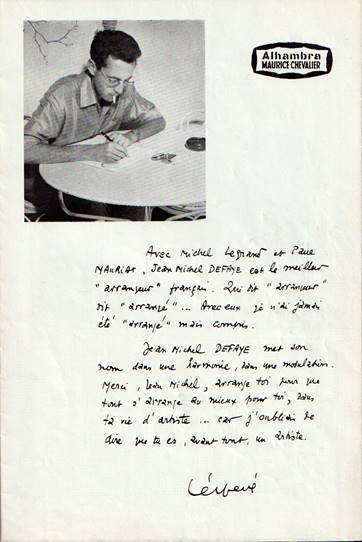 Alhambra
MAURICE CHEVALIER
Avec Michel Legrand et Paul
MAURIAT, Jean Michel DEFAYE est le meilleur
"arrangeur" français. Qui dit "arrangeur"
dit "arrangé"... Avec eux je n'ai jamais
été "arrangé" mais compris.
Jean Michel DEFAYE met son
nom dans une harmonie, dans une modulation.
Merci, Jean Michel, arrange toi pour que
tout s'arrange au mieux pour toi, dans
ta vie d'artiste... car j'oubliais de
dire que tu es, avant tout, un artiste.